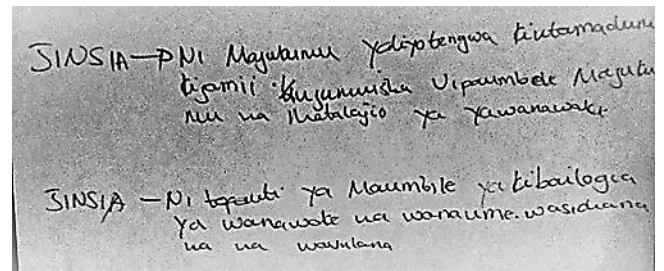 JINSIA → NI Majukumu yaliyotengwa kiutamaduni
kijamii. kujumuisha Vipaumbele Majuku
mu na Matalajio ya yawanawake
JINSIA - Ni tofauti ya Maumbile ya kibailogia
ya wanawake na wanaume. wasichana
na na wavulana